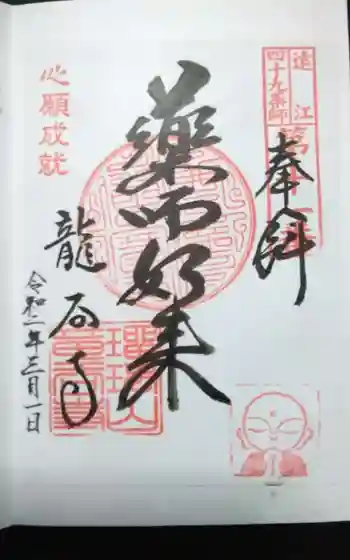 遠江
四十九薬師
奉拝
薬師如来
心願成就
龍石寺
令和二年三月一日